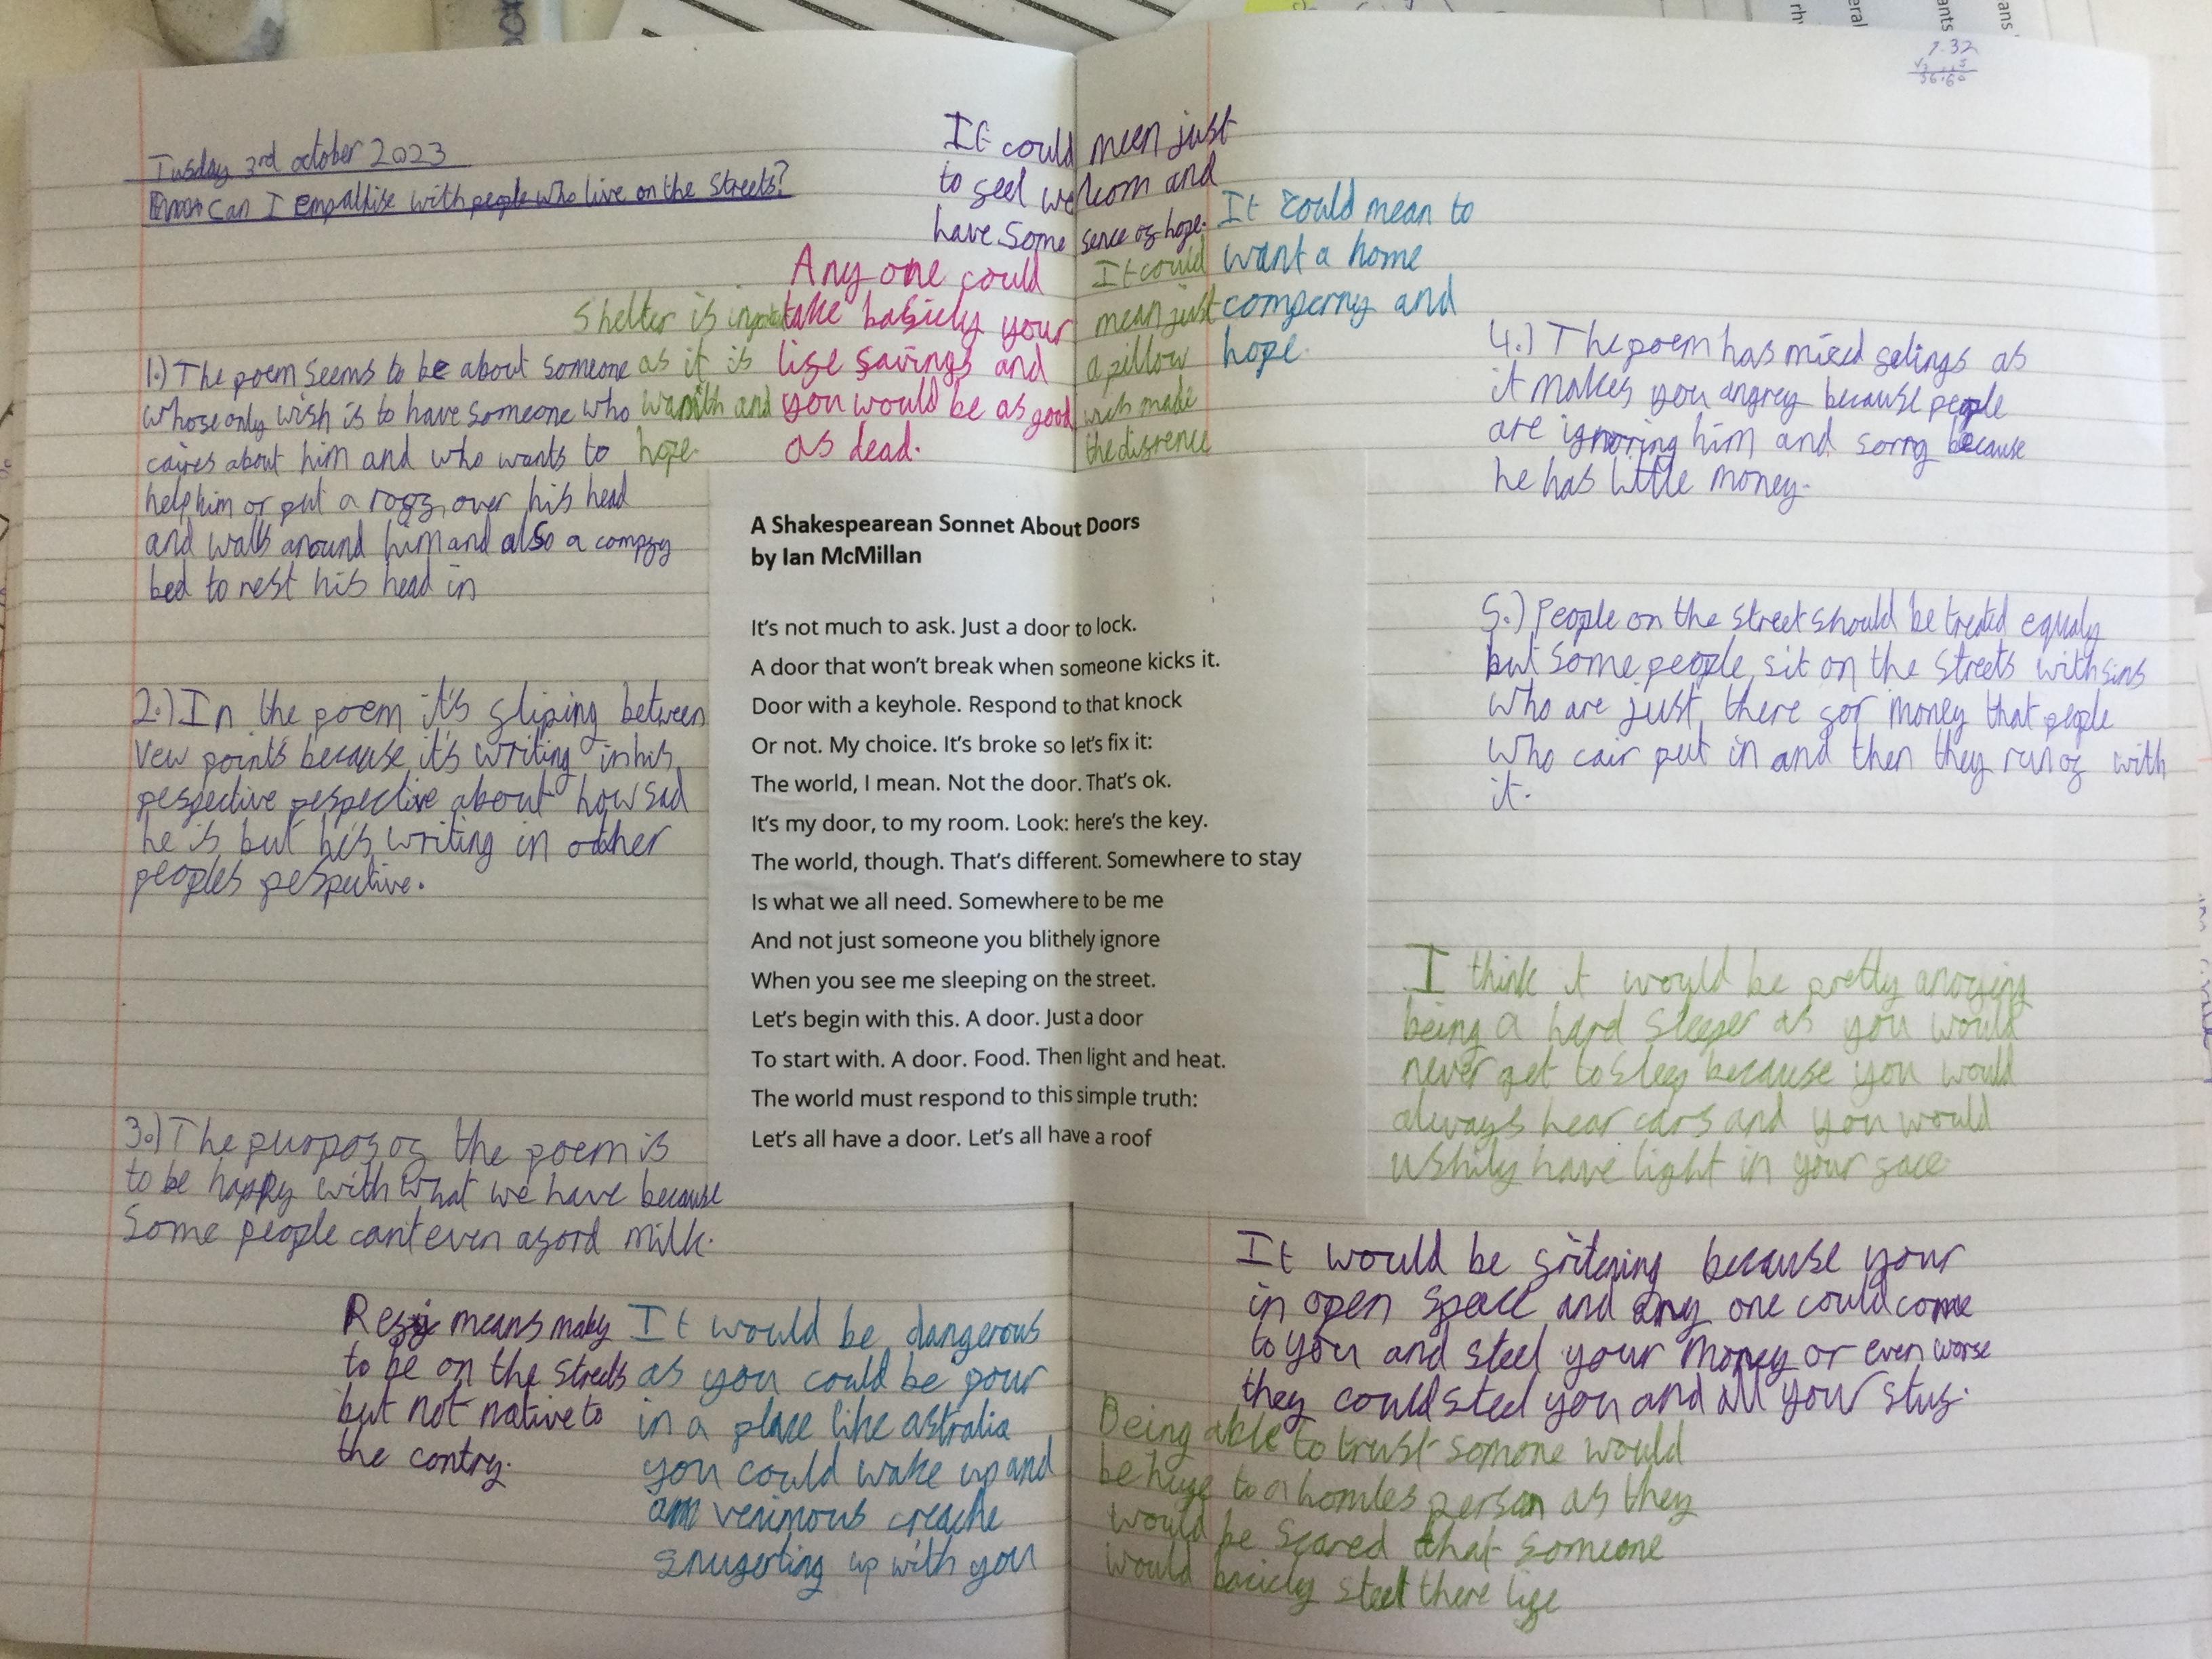 Tusday 3rd october 2023
can I empathise with people who live on the streets?
It could meen just
to feel welcom and
have some sence of hope.
It could mean to
want a home
comperny and
hope.
Any one could
take basicly your
life savings and
you would be as good
as dead.
Shelter is
as it is
warmth and
hope.
It could
mean just
a pillow
the difrence
1.) The poem seems to be about someone
whose only wish is to have someone who
caires about him and who wants to
help him or put a roof over his head
and walls around him and also a compfy
bed to rest his head in
2.) In the poem it's fliping between
vew points because it's writing in his
pespective pespective about how sad
he is but he's writing in other
peoples pespective.
3.) The purpos of the poem is
to be happy with what we have because
some people can't even aford milk.
A Shakespearean Sonnet About Doors
by Ian McMillan
It's not much to ask. Just a door to lock.
A door that won't break when someone kicks it.
Door with a keyhole. Respond to that knock
Or not. My choice. It's broke so let's fix it:
The world, I mean. Not the door. That's ok.
It's my door, to my room. Look: here's the key.
The world, though. That's different. Somewhere to stay
Is what we all need. Somewhere to be me
And not just someone you blithely ignore
When you see me sleeping on the street.
Let's begin with this. A door. Just a door
To start with. A door. Food. Then light and heat.
The world must respond to this simple truth:
Let's all have a door. Let's all have a roof
4.) The poem has mixed felings as
it makes you angrey because people
are ignoring him and sorry because
he has little money.
5.) People on the street should be treated equaly
but some people sit on the streets with sins
who are just there for money that people
who cair put in and then they run of with
it.
I think it would be pretty anoying
being a hard sleeper as you would
never get to sleep because you would
always hear cars and you would
ushily have light in your face
It would be fritening because your
in open space and any one could come
to you and steel your money or even worse
they could steel you and all your stuf.
Being able to trust somone would
be huge to a homles person as they
would be scared that someone
would basicly steel there life
means maby
to be on the streets
but not native to
the contry.
It would be dangerous
as you could be pour
in a place like astralia
you could wake up and
venimous creache
snugerling up with you
7.32